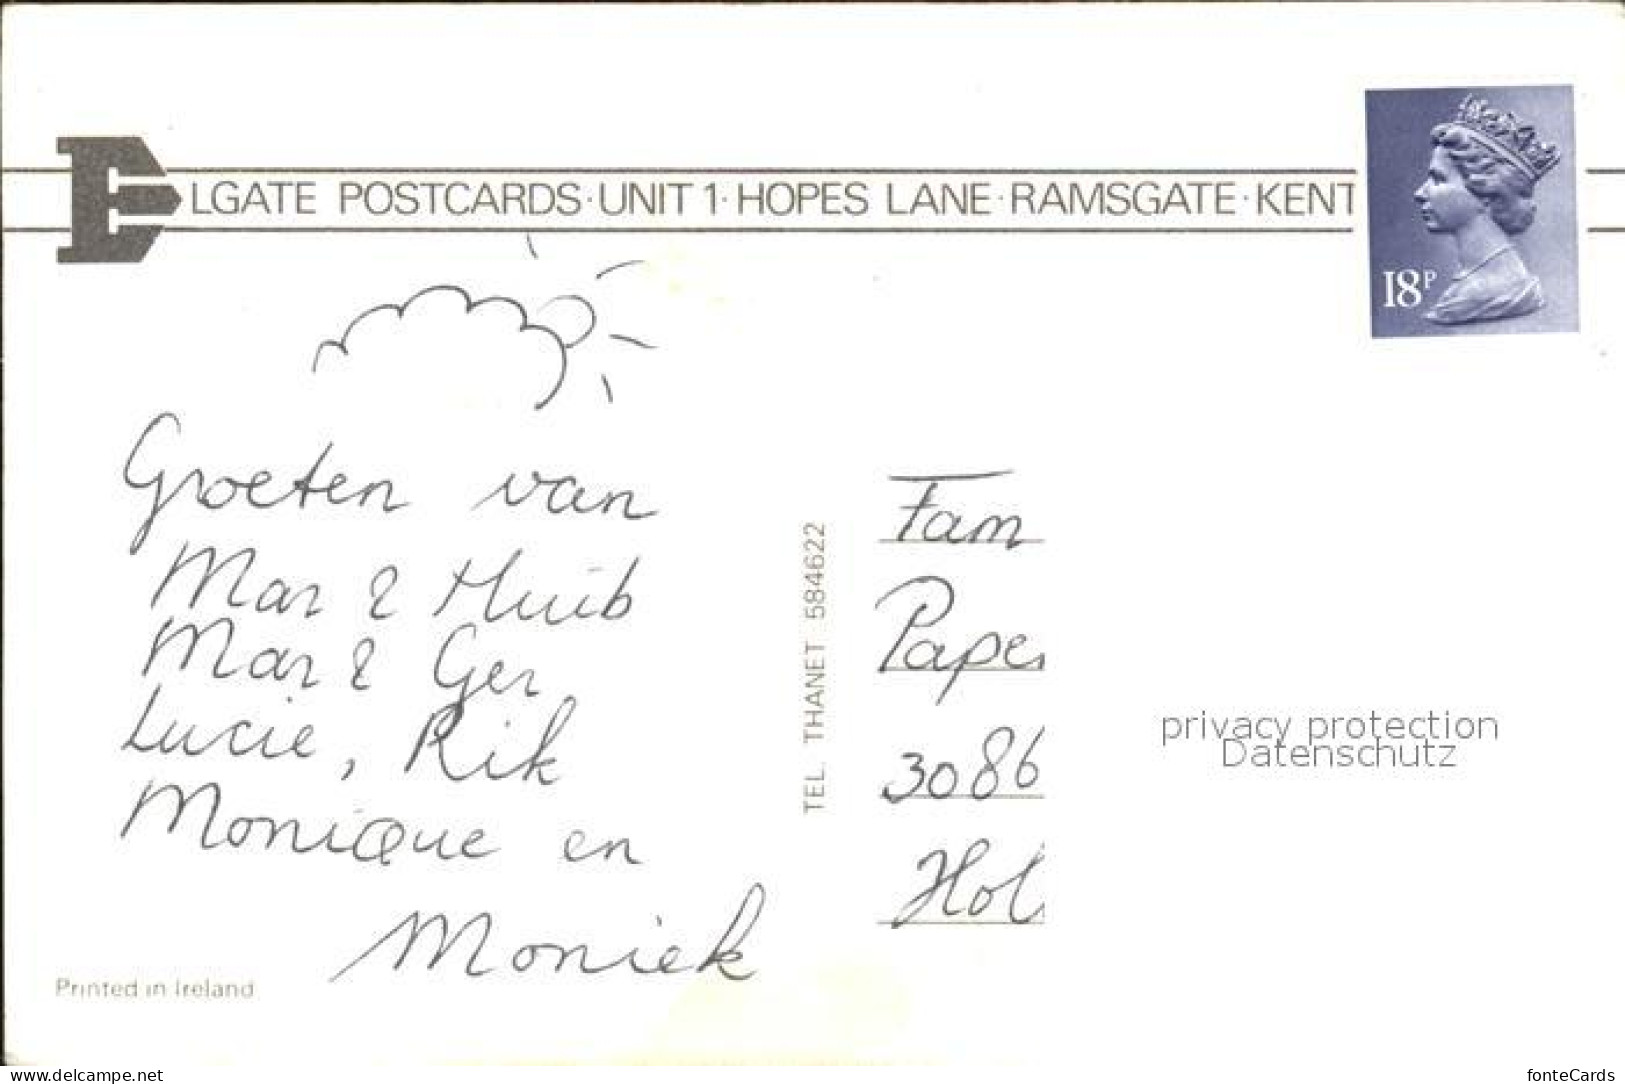 ELGATE POSTCARDS · UNIT 1 · HOPES LANE · RAMSGATE · KENT
18P
Groeten van
Mar & Huib
Mar & Ger
Lucie, Rik
Monique en
Moniek
Printed in Ireland
TEL. THANET 584622
Fam
Pape
3086
Hol
privacy protection
Datenschutz
www.delcampe.net
fonteCards